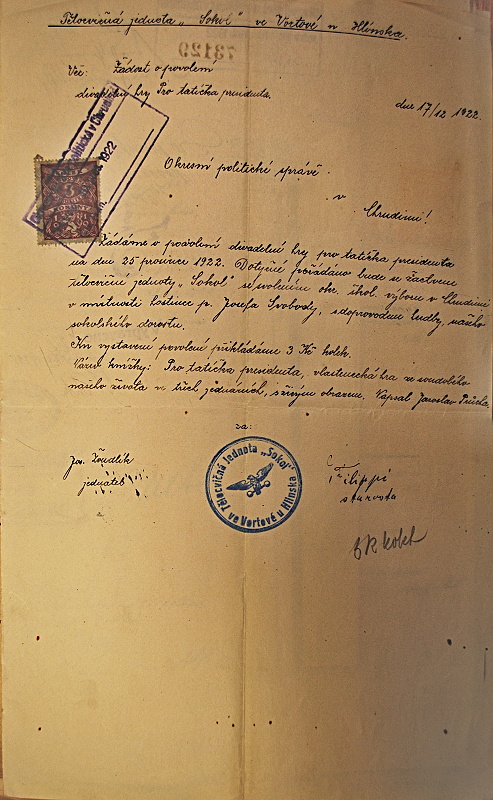 Tělocvičná jednota „Sokol" ve Vortové u Hlinska.
73129
Věc: Žádost o povolení
divadelní hry Pro tatíčka presidenta.
dne 17/12 1922.
1922
Okresní politické správě
v
Chrudimi!
3
Žádáme o povolení divadelní hry pro tatíčka presidenta
na den 25 prosince 1922. Dotyčné pořádáno bude
tělocvičné jednoty „Sokol" se svolením okr. škol. výboru v Chrudimi
v místnosti hostince p. Josefa Svobody, s doprovodem hudby, našeho
sokolského dorostu.
Ku vystavení povolení přikládáme 3 Kč kolek.
Název knížky: Pro tatíčka presidenta, vlastenecká hra ze soudobého
našeho života ve třech jednáních, s živým obrazem. Napsal Jaroslav
za:
Jos.
jednatel
Tělocvičná Jednota „Sokol" ve Vortové u Hlinska
Filippi
starosta
kolek